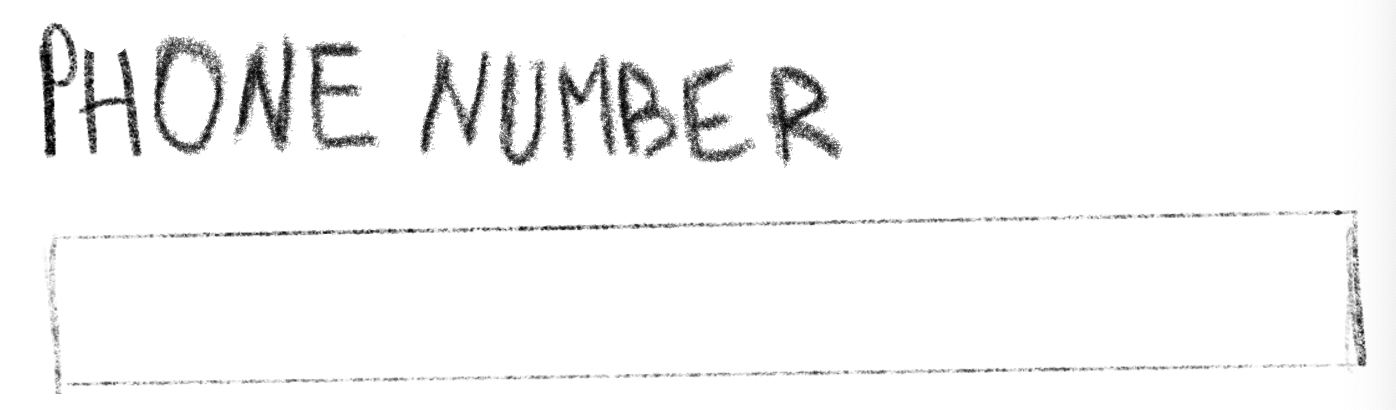 PHONE NUMBER